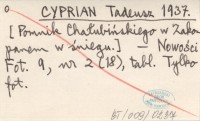 CYPRIAN Tadeusz 1937.
[Pomnik Chałubińskiego w Zako
panem w śniegu.] — Nowości
Fot. 9, nr 2 (18), tabl. Tylko
fot.